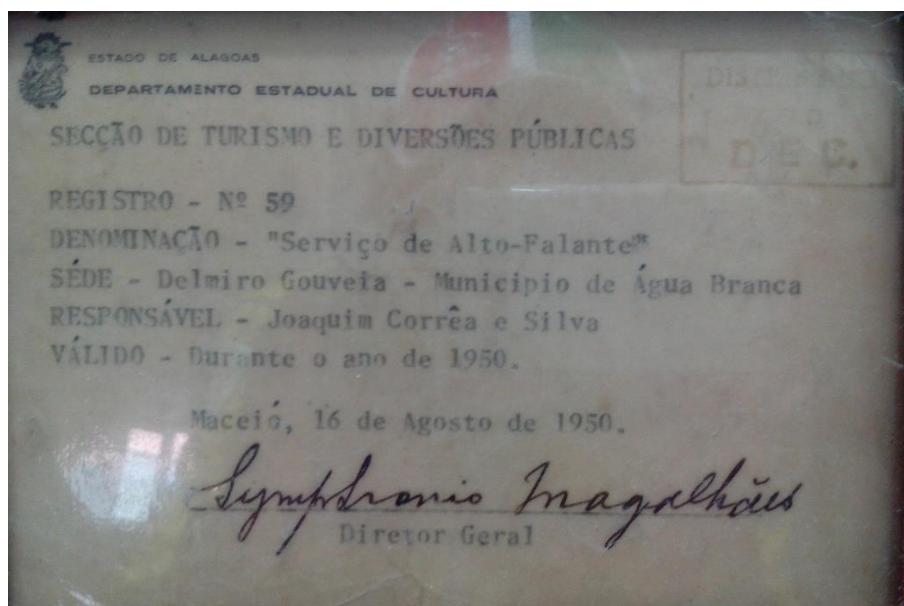 ESTADO DE ALAGOAS
DEPARTAMENTO ESTADUAL DE CULTURA
SECÇÃO DE TURISMO E DIVERSÕES PÚBLICAS
D E C.
REGISTRO - Nº 59
DENOMINAÇÃO - "Serviço de Alto-Falante"
SÉDE - Delmiro Gouveia - Municipio de Água Branca
RESPONSÁVEL - Joaquim Corrêa e Silva
VÁLIDO - Durante o ano de 1950.
Maceió, 16 de Agosto de 1950.
Symphronio Magalhães
Diretor Geral